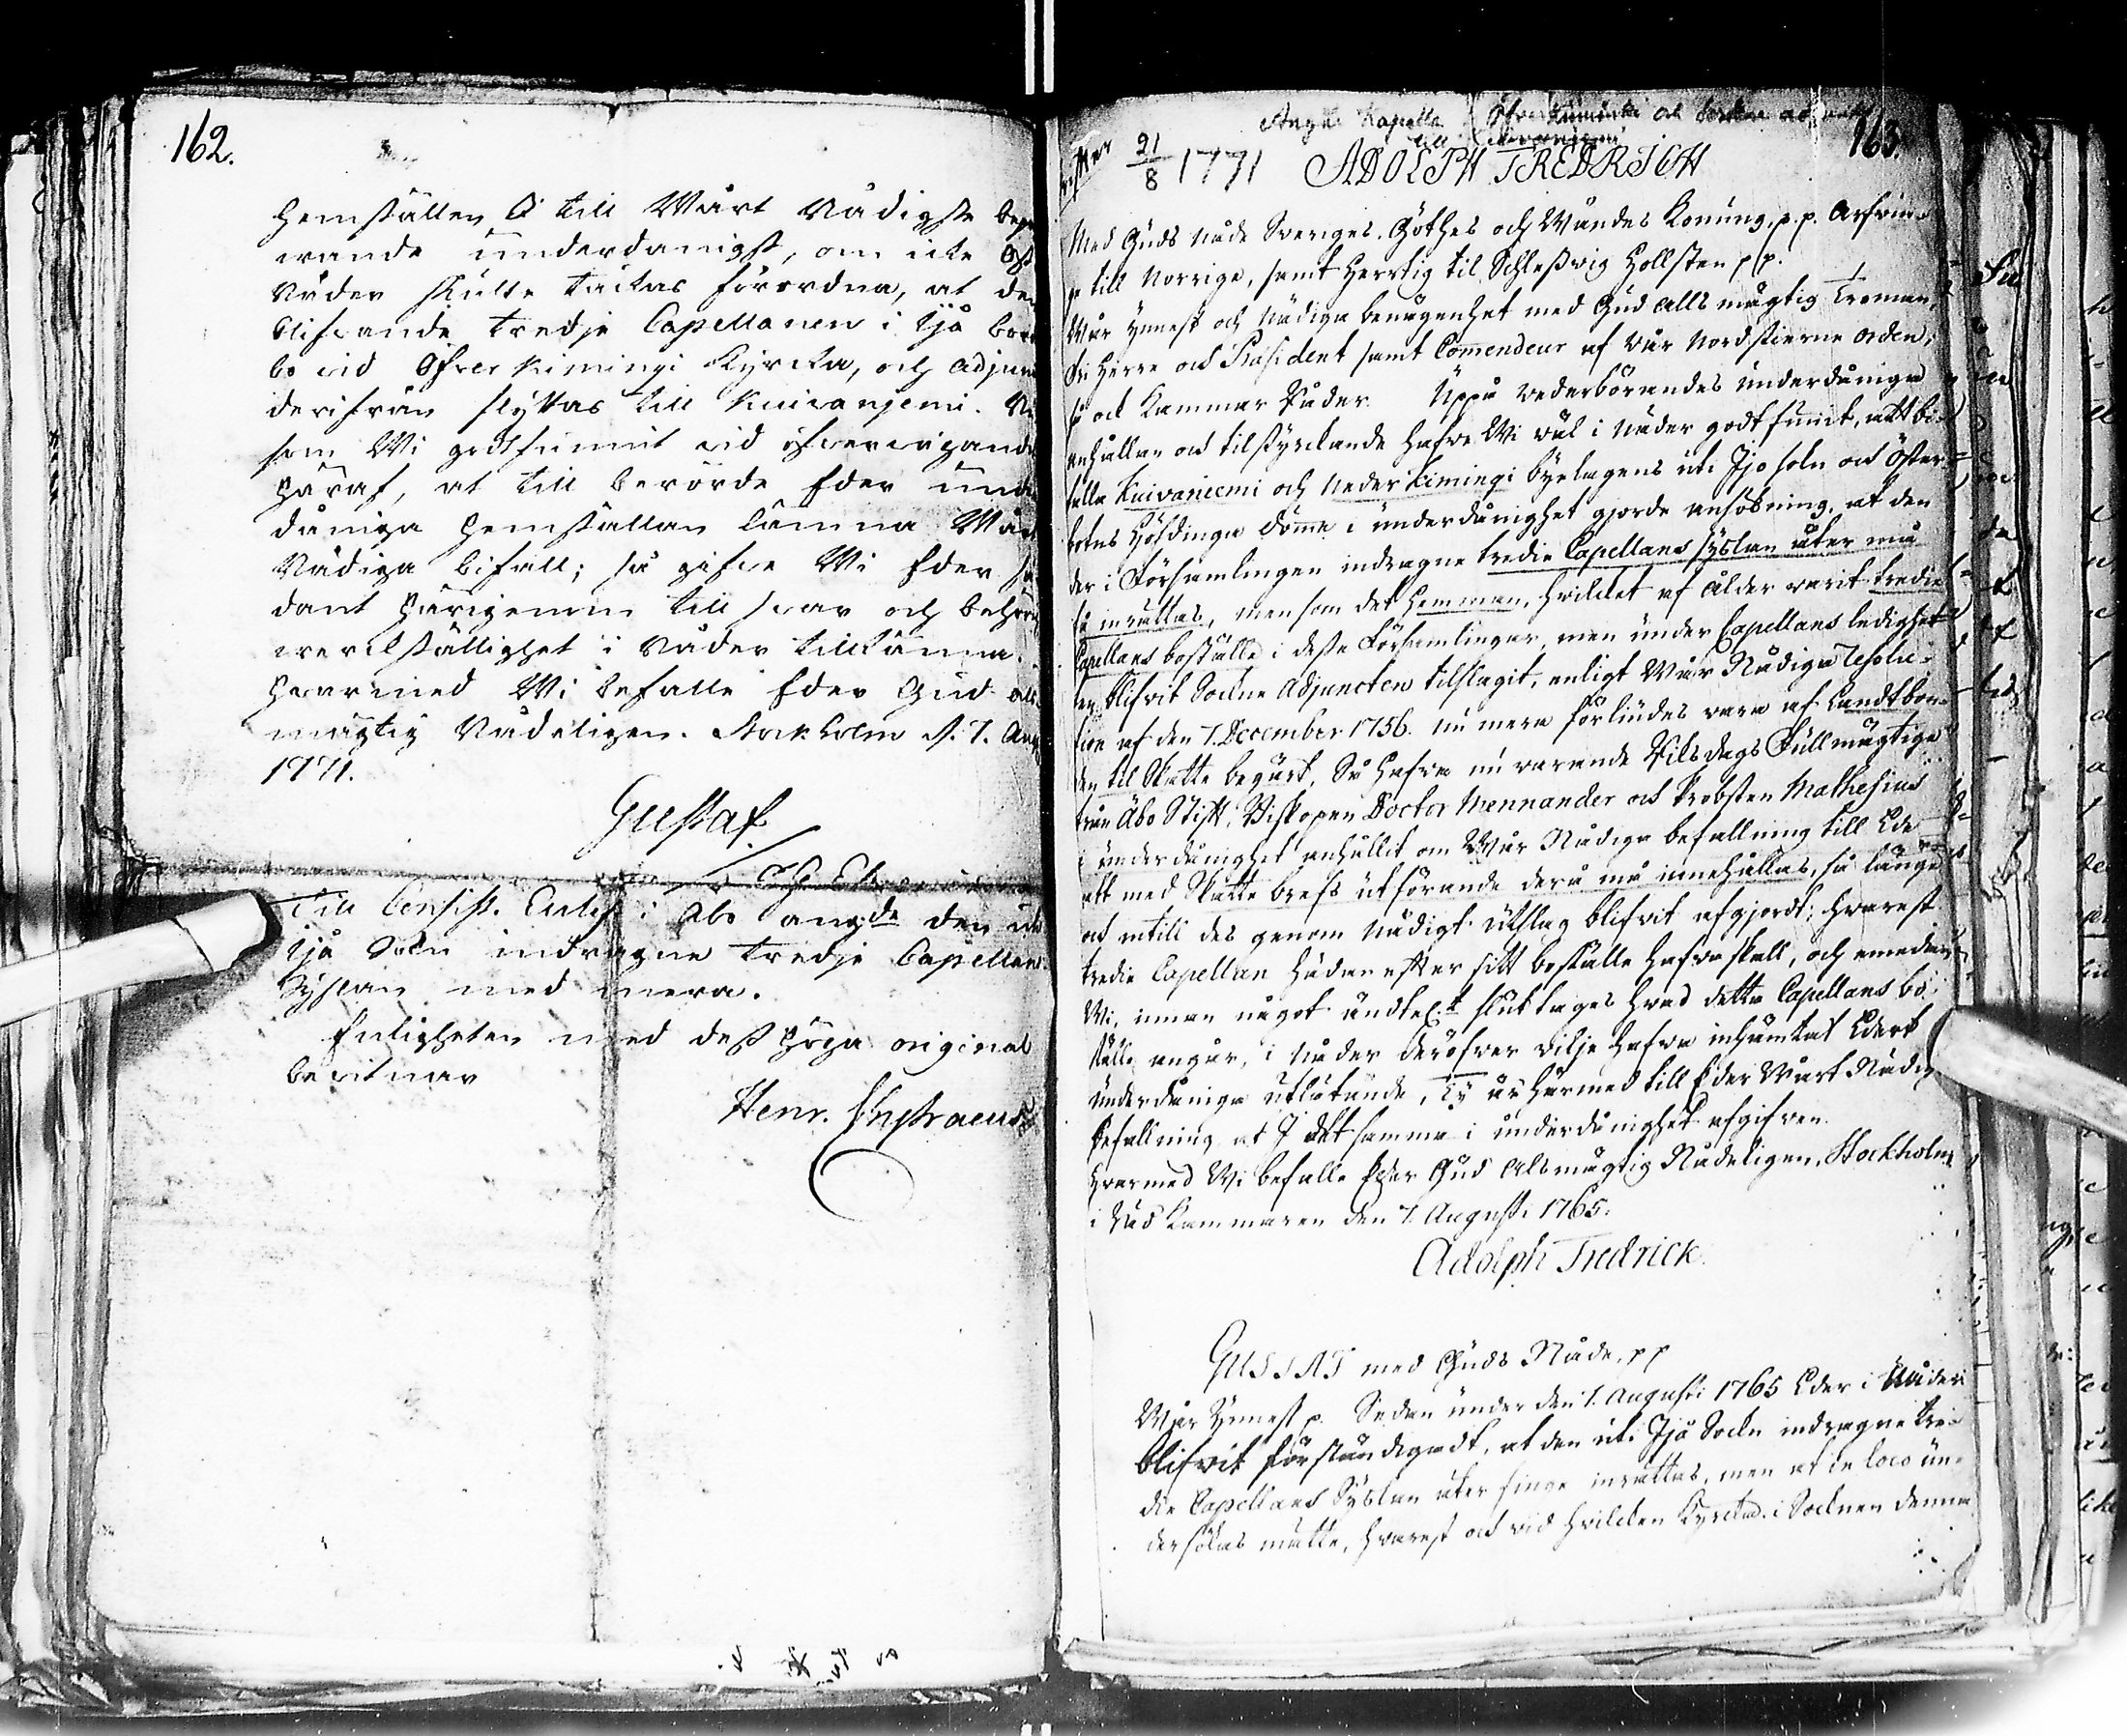 162.
hemställen I till Wårt Nådigste
wande underdånigst, om icke
Nåder skulle täckas förordna, at den
blifvande tredje Capellanen i Ijå
bo vid Öfver Kimingi Kyrcka, och adjun
derifrån flyttas till Kuivanjemi.
som Wi godtfunnit vid öfvervägande
häraf, at till berörde Eder
dåniga hemställan lämna Wårt
Nådiga bifall; så gifve Wi Eder
dant härigenom till svar och
werckställighet i Nåder tillkänna.
Hwarmed Wi befalle Eder Gud
mägtig Nådeligen. Stockholm d. 7. Aug
1771.
Gustaf
Till Consist. Eccles. i Åbo angde den uti
Ijå Sokn indragne tredje Capellans
Syslan med mera.
Enligheten med dess höga original
bevitnar
Henr.
163.
Kapella Öfver Kiminki och
till Kuivaniemi
21/8 1771 ADOLPH FREDRICH
Med Guds Nåde Sveriges, Göthes och Wändes Konung, p.p. Arfvin-
ge till Norrige, samt Hertig til Schleswig Hollsten p.p.
Wår ynnest och Nådiga benägenhet med Gud alls mägtig Troman,
Fri Herre och Præsident samt Commendeur af Vår Nordstierne Orden,
så och Kammar Råder. Uppå vederbörandes underdåniga
anhållan och tilstyrckande hafve Wi väl i Nåder godt funnit, att bi-
falla Kuivaniemi och Neder Kimingi byelagens uti Ijo Sokn och Öster-
botns Höfdinge Döme i underdånighet gjorde ansökning, at den
der i Församlingen indragne tredie Capellans syslan åter må
få inrättas, men som det Hemman, hvilcket af ålder varit tredie
Capellans boställe i dessa Församlingar, men under Capellans ledighet
ten blifvit Sockne Adjuncten tilslagit, enligt Wår Nådiga Resolu-
tion af den 7. December 1756. nu mera förljudes vara af Landtbon-
den til Skatte begärt, Så hafva nu varande Riksdags Fullmägtige
från Åbo Stift, Biskopen Doctor Mennander och Probsten Mathesius
i underdånighet anhållit om Wår Nådiga befallning till Eder
att med Skatte brefs utfärande derå må innehållas, så länge
och intill des genom Nådigt utslag blifvit afgjordt; hvarest
tredie Capellan hädanefter sitt boställe hafva skall, och emedan
Wi, innan något ändtel.t slut tages hvad detta Capellans bo-
ställe angår, i Nåder deröfver vilje hafva inhämtat Edert
underdåniga utlåtande, Ty är härmed till Eder Wårt Nådig
befallning at I det samma i underdånighet afgifven.
Hvarmed Wi befalle Eder Gud Alsmägtig Nådeligen. Stockholm
i Råd Kammaren den 7. Augusti 1765.
Adolph Fredrick.
GUSTAF med Guds Nåde, p p
Wår Ynnest p. Sedan under den 7. Augusti 1765 Eder i Nåder
blifvit förständigadt, at den uti Ijå Sockn indragne tre-
die Capellans Syslan åter finge inrättas, men at in loco un-
dersökas måtte, hvarest och vid hvilcken Kyrcka i Socknen denna